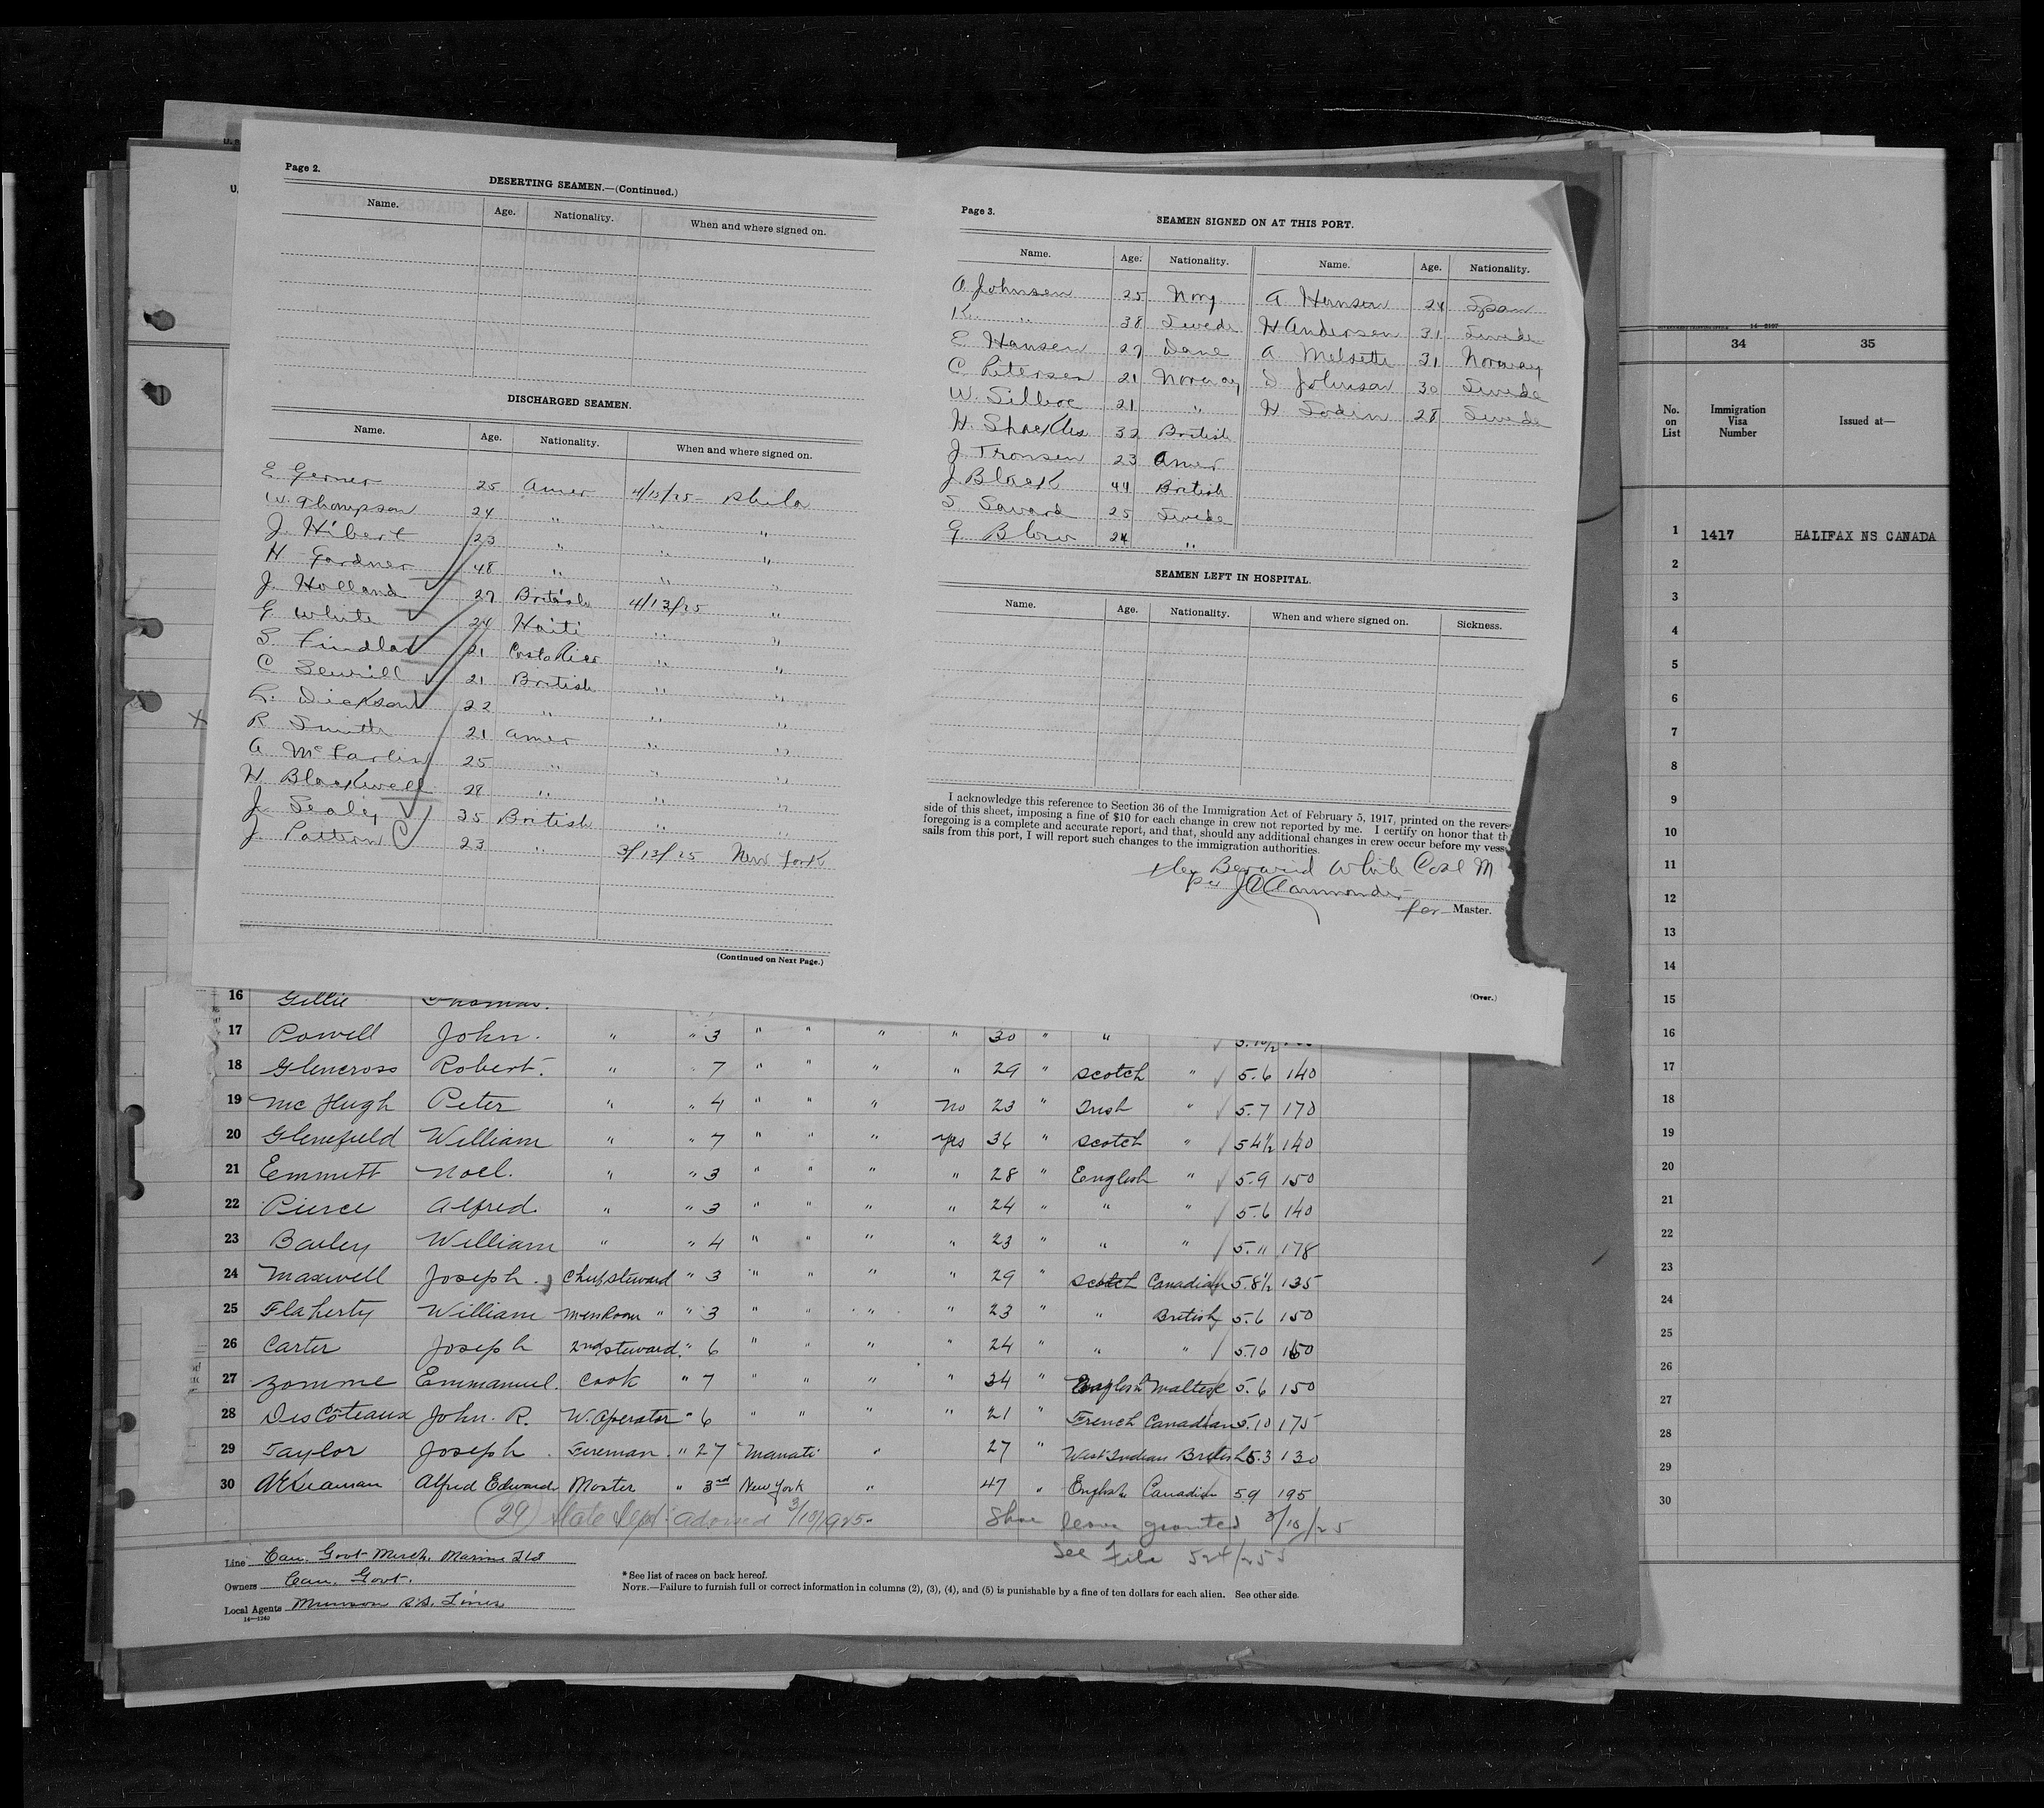 Page 2.
DESERTING SEAMEN.—(Continued.)
Name. Age. Nationality. When and where signed on.
DISCHARGED SEAMEN.
Name. Age. Nationality. When and where signed on.
E Gerner 25 Amer 4/13/25 Phila
W. Thompson 24 " " "
J. Hibert 23 " " "
H Gardner 48 " " "
J. Holland 27 British 4/13/25 "
G. White 24 Haiti " "
S. Findlat 21 Costa Rica " "
C Sewill 21 British " "
L. Dickson 22 " " "
R Smith 21 Amer " "
A McFarlin 25 " " "
H Blackwell 28 " " "
J. Sealey 35 British " "
J. Patton 23 " 3/13/25 New York
(Continued on Next Page.)
Page 3.
SEAMEN SIGNED ON AT THIS PORT.
Name. Age. Nationality. Name. Age. Nationality.
A Johnsen 25 Norg A Hansen 24 Span
K. " 38 Swede H Andersen 31 Swede
E Hansen 27 Dane A 31 Norway
C Petersen 21 Norway D Johnson 30 Swede
W. 21 " H Sodin 28 Swede
H. 32 British
J. Tronsen 23 Amer
J. Black 44 British
S Saward 25 Swede
G Blow 24 "
SEAMEN LEFT IN HOSPITAL.
Name. Age. Nationality. When and where signed on. Sickness.
I acknowledge this reference to Section 36 of the Immigration Act of February 5, 1917, printed on the revers
side of this sheet, imposing a fine of $10 for each change in crew not reported by me. I certify on honor that th
foregoing is a complete and accurate report, and that, should any additional changes in crew occur before my vess
sails from this port, I will report such changes to the immigration authorities.
Berwind White Coal M
per
for Master.
(Over.)
16 Gillie Thomas.
17 Powell John. " " 3 " " " " 30 " " "
18 Glencross Robert. " " 7 " " " " 29 " Scotch " 5.6 140
19 McHugh Peter " " 4 " " " No 23 " Irish " 5.7 170
20 Glenefield William " " 7 " " " Yes 36 " Scotch " 5 4½ 140
21 Emmett Noel. " " 3 " " " 28 " English " 5.9 150
22 Pierce Alfred. " " 3 " " " " 24 " " " 5.6 140
23 Bailey William " " 4 " " " " 23 " " " 5.11 178
24 Maxwell Joseph. Chief Steward " 3 " " " " 29 " Scotch Canadian 5.8½ 135
25 Flaherty William Messroom " " 3 " " " " 23 " " British 5.6 150
26 Carter Joseph 2nd Steward. " 6 " " " " 24 " " " 5.10 150
27 Zomme Emmanuel. Cook " 7 " " " " 34 " English Maltese 5.6 150
28 DesCôteaux John. R. W. Operator " 6 " " " " 21 " French Canadian 5.10 175
29 Taylor Joseph. Fireman. " 27 Manati " 27 " West Indian British 5.3 130
30 Alfred Edward Master " 3rd New York " 47 " English Canadian 5 9 195
(29) State Dept. advised 3/10/1925.
Shore leave granted 3/10/25
See File 524/255
Line Can. Govt. Merch. Marine Ltd
Owners Can. Govt.
Local Agents Munson S.S. Lines
14—1240
* See list of races on back hereof.
NOTE.—Failure to furnish full or correct information in columns (2), (3), (4), and (5) is punishable by a fine of ten dollars for each alien. See other side.
14—2107
34 35
No. on List Immigration Visa Number Issued at—
1 1417 HALIFAX NS CANADA
2
3
4
5
6
7
8
9
10
11
12
13
14
15
16
17
18
19
20
21
22
23
24
25
26
27
28
29
30